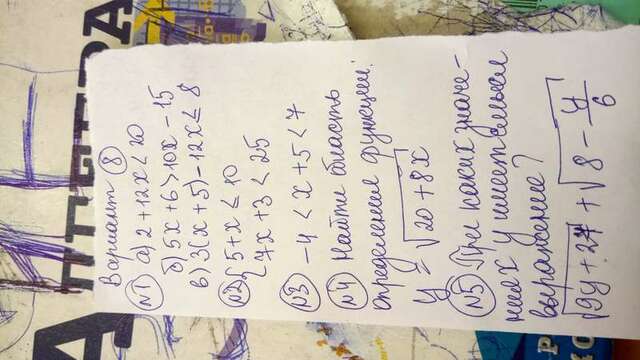 АЛГЕБРА
Вариант 8
№1 а) 2 + 12x < 20
б) 5x + 6 > 10x - 15
в) 3(x + 5) - 12x ≤ 8
№2 { 5 + x ≤ 10
7x + 3 < 25
№3 -4 < x + 5 < 7
№4 Найти область
определения функции:
y = √(20 + 8x)
№5 При каких значе-
ниях y имеет смысл
выражение?
√(9y + 27) + √(8 - y/6)